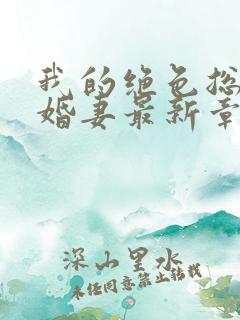 我的绝色总
婚妻最新章
深山里水
未经同意禁止转载